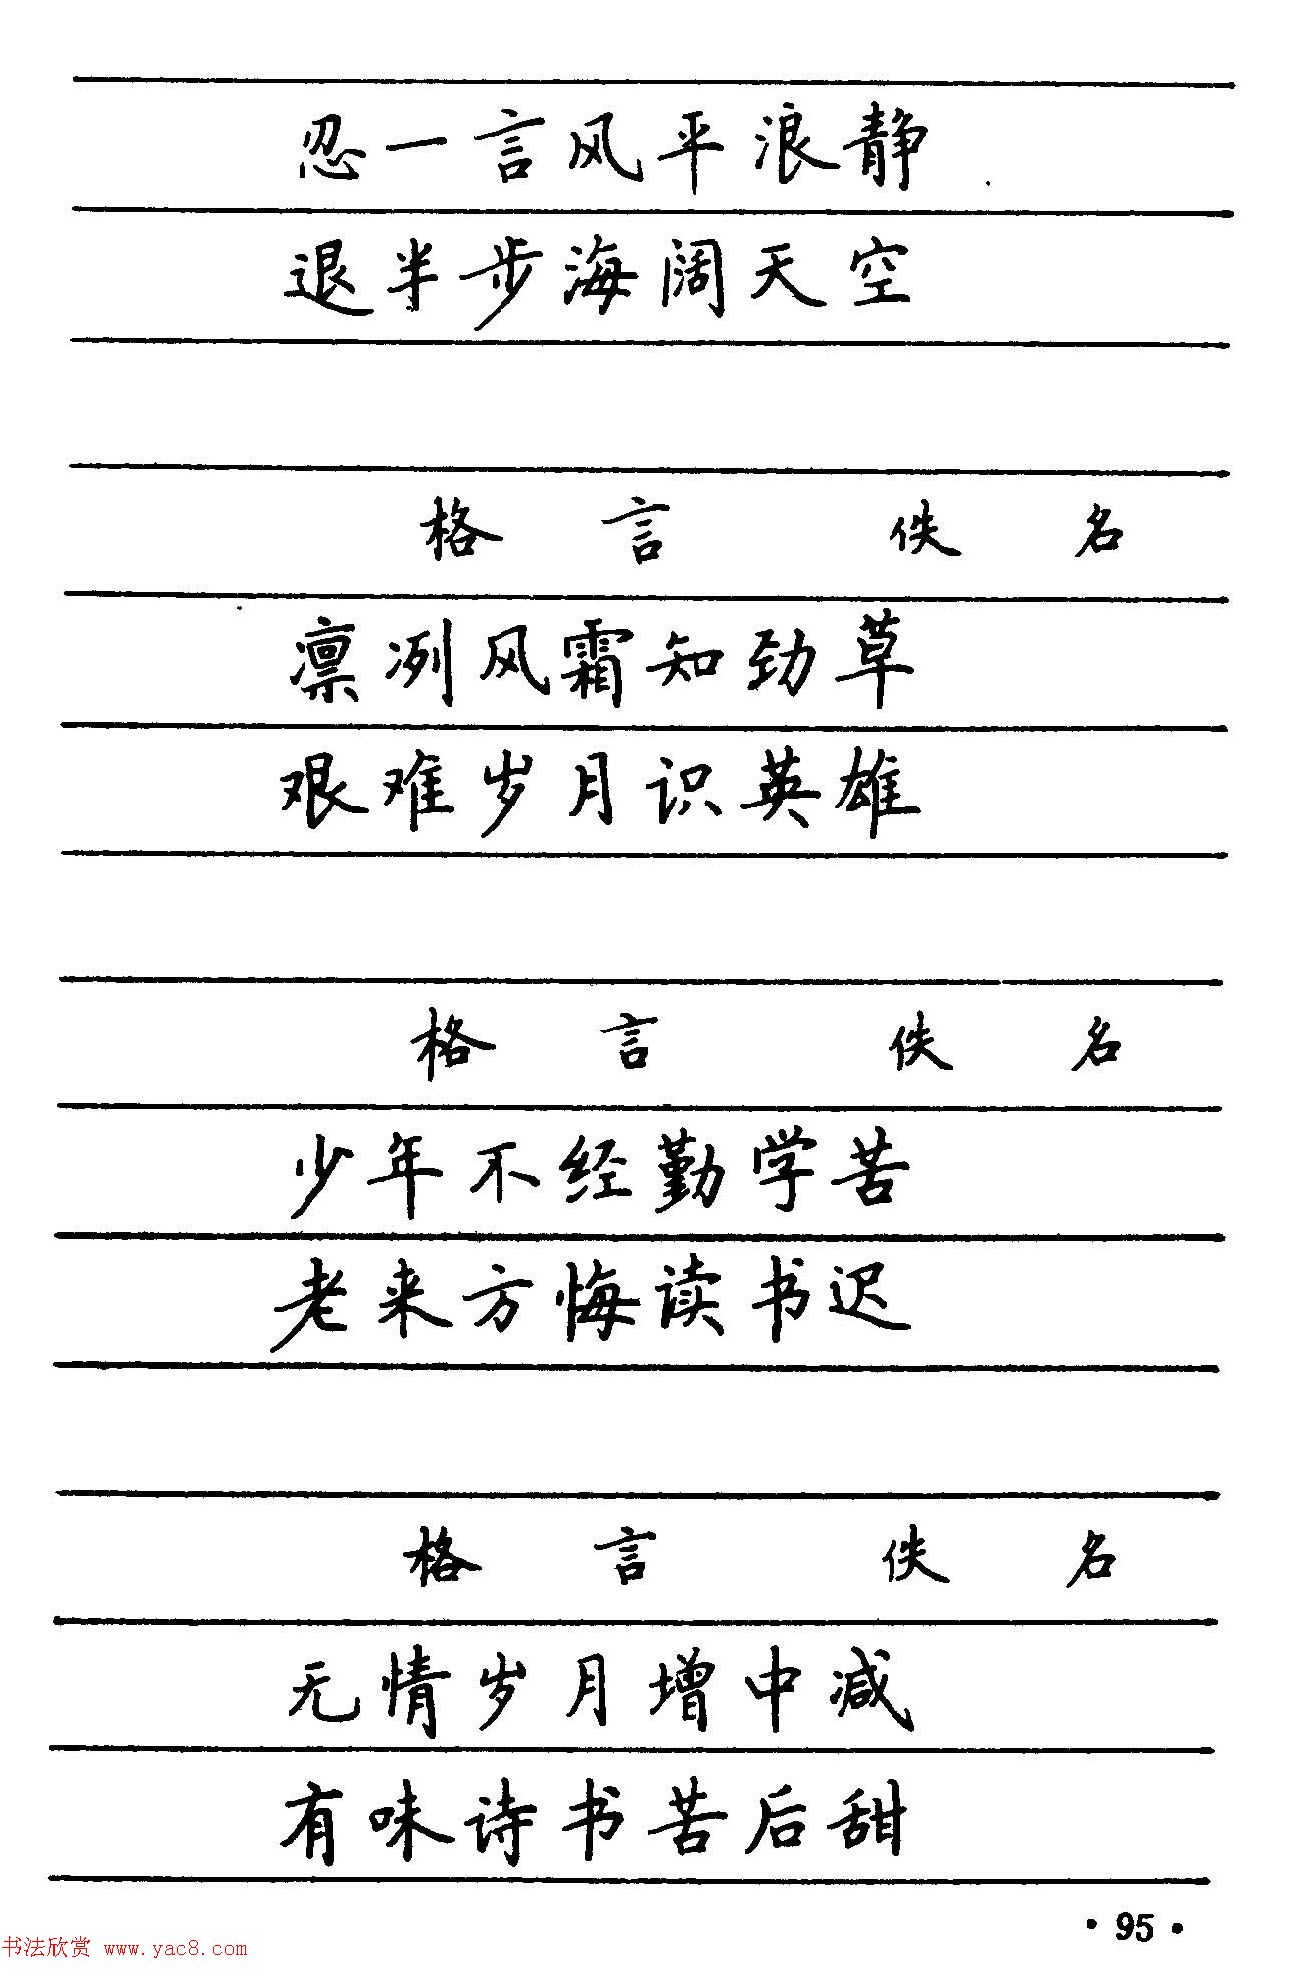 忍一言风平浪静
退半步海阔天空
格言 佚名
凛冽风霜知劲草
艰难岁月识英雄
格言 佚名
少年不经勤学苦
老来方悔读书迟
格言 佚名
无情岁月增中减
有味诗书苦后甜
·95·
书法欣赏 www.yac8.com